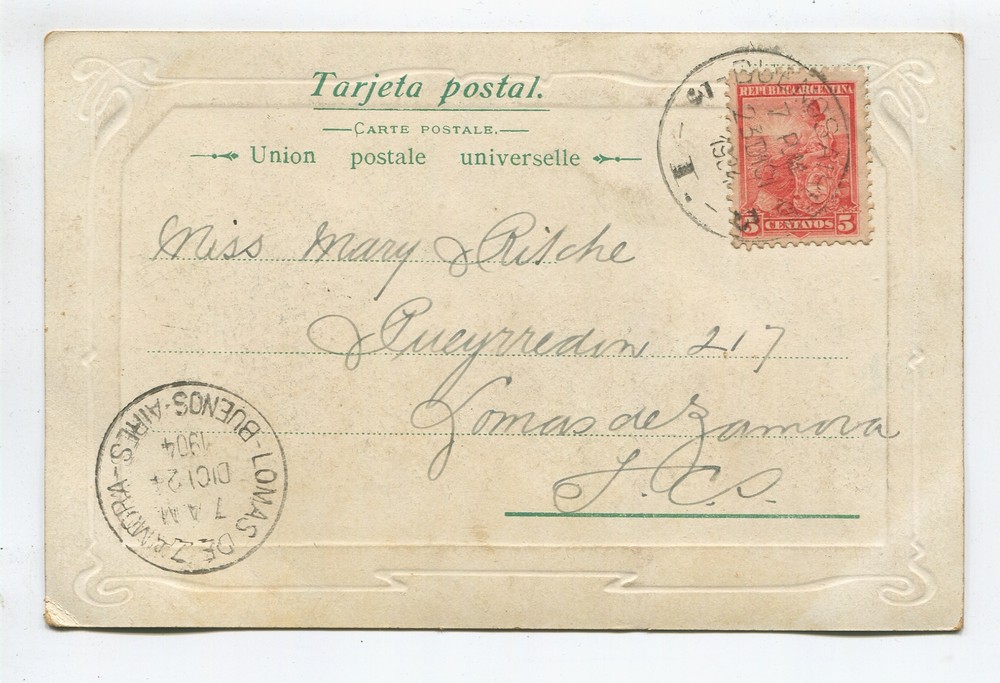 Tarjeta postal.
CARTE POSTALE.
Union postale universelle
REPUBLICA ARGENTINA
5 CENTAVOS 5
7 P.M.
23 DICI
1904
Miss Mary Ritche
Pueyrredin 217
Lomas de Zamora
F. C. S.
LOMAS DE ZAMORA-S-BUENOS-AIRES-
7 A.M
DICI 24
1904